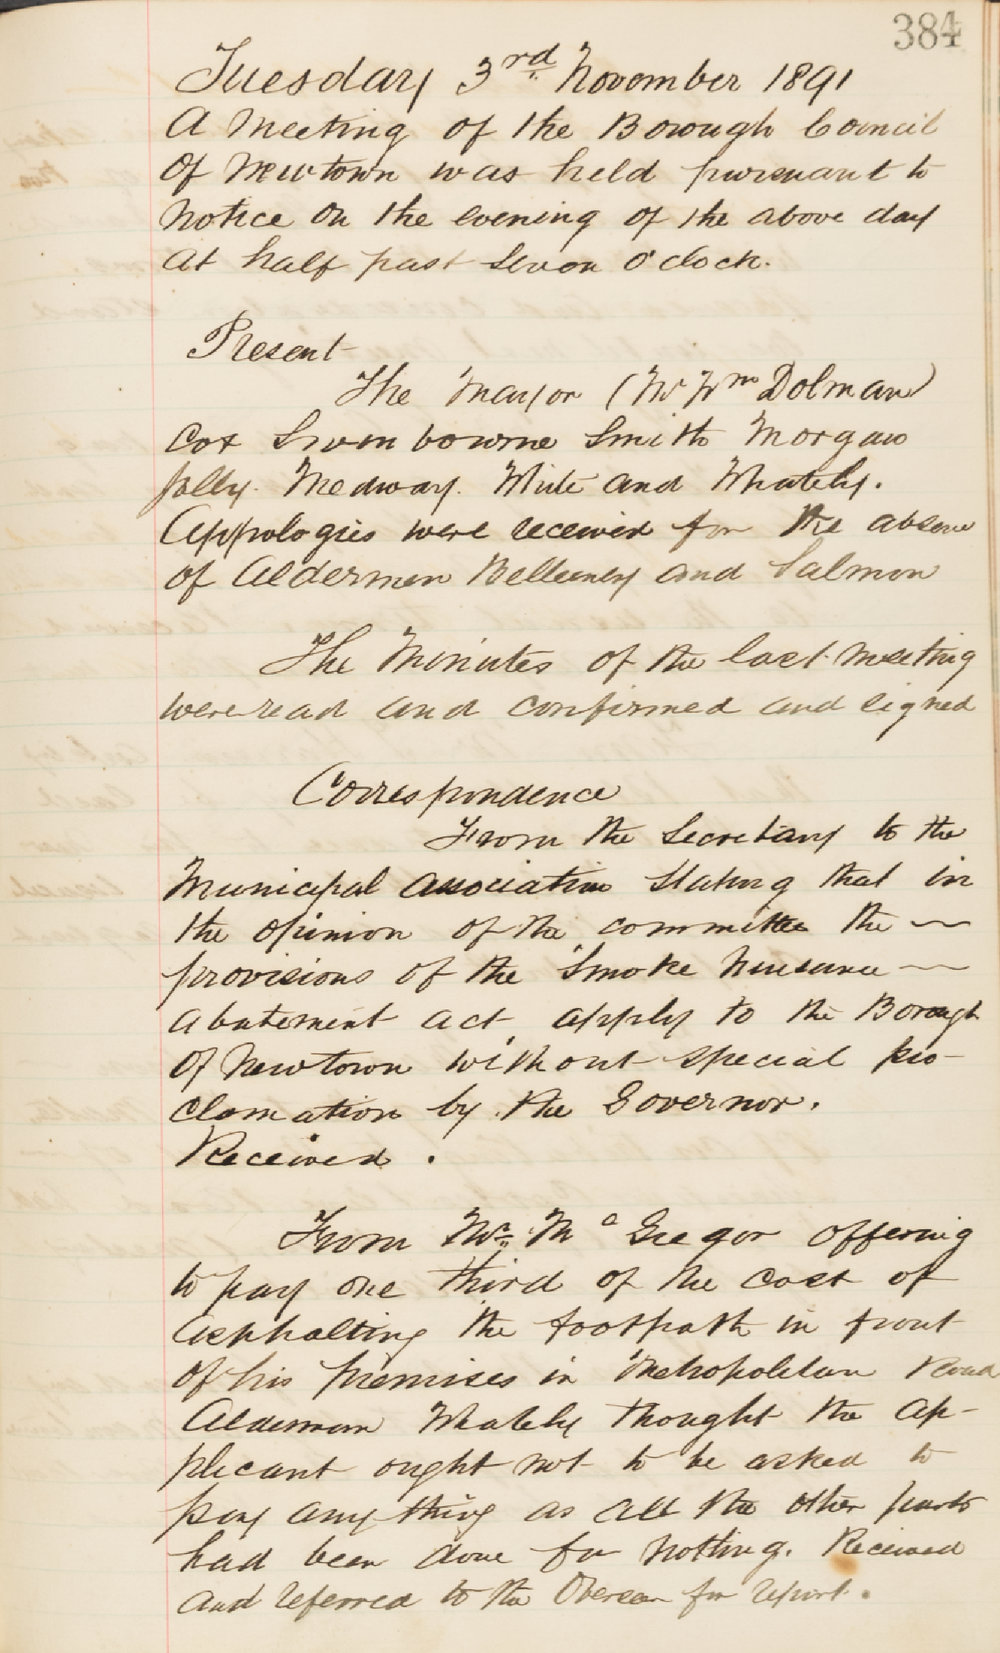 384
Tuesday 3rd November 1891
A Meeting of the Borough Council
Of Newtown was held pursuant to
Notice on the evening of the above day
at half past Seven o'clock.
Present
The Mayor (Mr Wm Dolman)
Cox Swinbourne Smith Morgan
Jolly. Medway. White and Whately.
Appologies were received for the absence
of Aldermen Belleney and Salmon
The Minutes of the last meeting
were read and confirmed and signed
Correspondence
From the Secretary to the
Municipal association Stating that in
the opinion of the committee the —
provisions of the Smoke Nuisance —
abatement act apply to the Borough
Of Newtown without special pro-
clamation by the Governor.
Received.
From Mr. Mc Gregor offering
to pay one third of the cost of
Asphalting the footpath in front
of his premises in Metropolitan Road
Alderman Whately thought the ap-
plicant ought not to be asked to
pay any thing as all the other parts
had been done for nothing. Received
and referred to the Overseer for report.